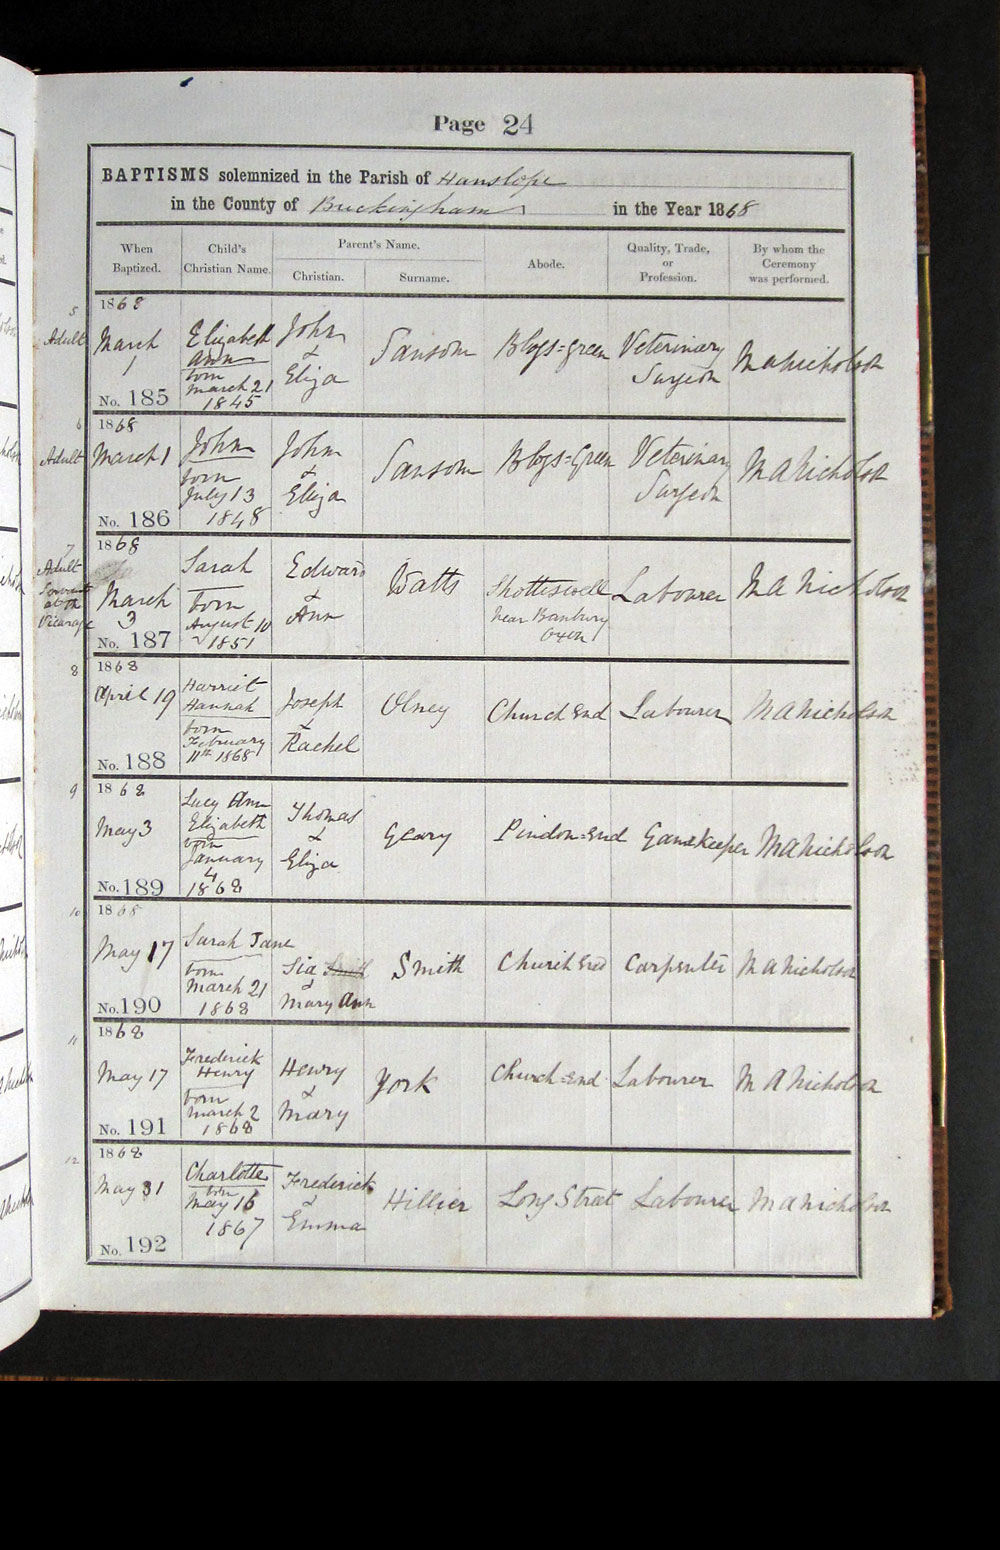 Page 24
BAPTISMS solemnized in the Parish of Hanslope
in the County of Buckingham in the Year 1868
When Baptized.
Child's Christian Name.
Parent's Name.
Christian.
Surname.
Abode.
Quality, Trade, or Profession.
By whom the Ceremony was performed.
5
Adult
1868
March
1
No. 185
Elizabeth
Ann
born
March 21
1845
John
&
Eliza
Sansom
Veterinary
Surgeon
M A Nicholson
6
Adult
1868
March 1
No. 186
John
born
July 13
1848
John
&
Eliza
Sansom
Veterinary
Surgeon
M A Nicholson
7
Adult
Servant
at the
Vicarage
1868
March
3
No. 187
Sarah
born
August 10
1851
Edward
&
Ann
Watts
Shotteswell
Near Banbury
Oxon
Labourer
M A Nicholson
8
1868
April 19
No. 188
Harriet
Hannah
born
February
11th 1868
Joseph
&
Rachel
Olney
Church End
Labourer
M A Nicholson
9
1868
May 3
No. 189
Lucy Ann
Elizabeth
born
January
4
1868
Thomas
&
Eliza
Geary
Pindon-End
Gamekeeper
M A Nicholson
10
1868
May 17
No. 190
Sarah Jane
born
March 21
1868
&
Mary Ann
Smith
Church End
Carpenter
M A Nicholson
11
1868
May 17
No. 191
Frederick
Henry
born
March 2
1868
Henry
&
Mary
York
Church-End
Labourer
M A Nicholson
12
1868
May 31
No. 192
Charlotte
born
May 16
1867
Frederick
&
Emma
Hillier
Long Street
Labourer
M A Nicholson